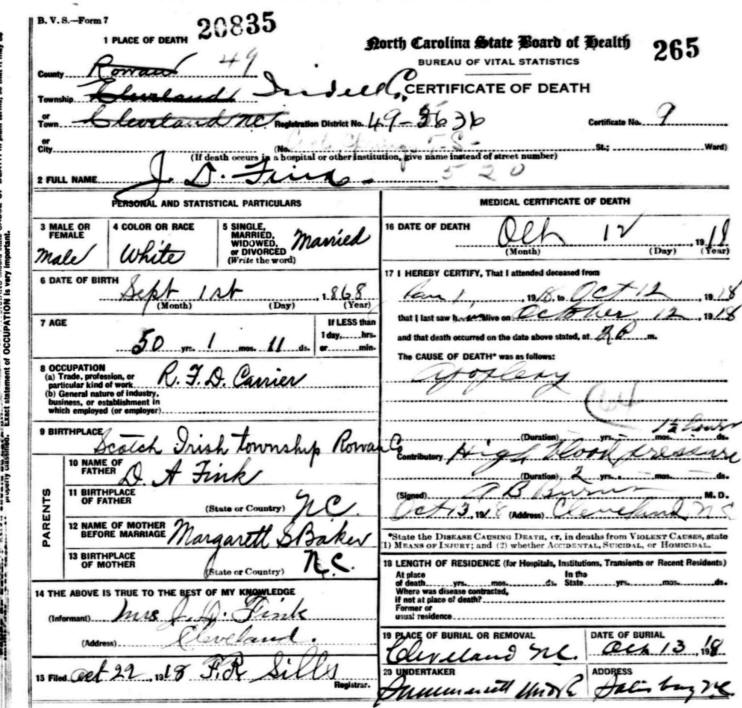 B. V. S.—Form 7
20835
1 PLACE OF DEATH
49
North Carolina State Board of Health
265
BUREAU OF VITAL STATISTICS
County Rowan
Iredell Co.
CERTIFICATE OF DEATH
Township Cleveland
or
Town Cleveland N.C. Registration District No. 49-5636 Certificate No. 9
or
City (No. St.; Ward)
(If death occurs in a hospital or other institution, give name instead of street number)
2 FULL NAME J. D. Fink
520
PERSONAL AND STATISTICAL PARTICULARS
3 MALE OR FEMALE
male
4 COLOR OR RACE
White
5 SINGLE, MARRIED, WIDOWED, or DIVORCED
(Write the word)
Married
6 DATE OF BIRTH
Sept 1st , 1868
(Month) (Day) (Year)
7 AGE
50 yrs. 1 mos. 11 ds.
If LESS than
1 day, hrs.
or min.
8 OCCUPATION
(a) Trade, profession, or
particular kind of work R. F. D. Carrier
(b) General nature of industry,
business, or establishment in
which employed (or employer)
9 BIRTHPLACE
Scotch Irish township Rowan Co
PARENTS
10 NAME OF FATHER
D. A Fink
11 BIRTHPLACE OF FATHER
(State or Country) N.C.
12 NAME OF MOTHER BEFORE MARRIAGE
Margarett S Baker
13 BIRTHPLACE OF MOTHER
(State or Country) N.C.
14 THE ABOVE IS TRUE TO THE BEST OF MY KNOWLEDGE
(Informant) Mrs J. D. Fink
(Address) Cleveland.
15 Filed Oct 22, 1918 F. R. Sills
Registrar.
MEDICAL CERTIFICATE OF DEATH
16 DATE OF DEATH
Oct 12 1918
(Month) (Day) (Year)
17 I HEREBY CERTIFY, That I attended deceased from
1, 1918, to Oct 12 1918
that I last saw h alive on October 12 1918
and that death occurred on the date above stated, at m.
The CAUSE OF DEATH* was as follows:
Apoplexy
64
1½ hours
(Duration) yrs. mos. ds.
Contributory High blood pressure
(Duration) 2 yrs. mos. ds.
(Signed) M. D.
Oct 13, 1918 (Address) Cleveland N.C
*State the DISEASE CAUSING DEATH, or, in deaths from VIOLENT CAUSES, state
(1) MEANS OF INJURY; and (2) whether ACCIDENTAL, SUICIDAL, or HOMICIDAL.
18 LENGTH OF RESIDENCE (for Hospitals, Institutions, Transients or Recent Residents)
At place In the
of death yrs. mos. ds. State yrs. mos. ds.
Where was disease contracted,
if not at place of death?
Former or
usual residence
19 PLACE OF BURIAL OR REMOVAL
Cleveland N.C.
DATE OF BURIAL
Oct 13 1918
20 UNDERTAKER
ADDRESS
Salisbury N.C
property classified. Exact statement of OCCUPATION is very important.